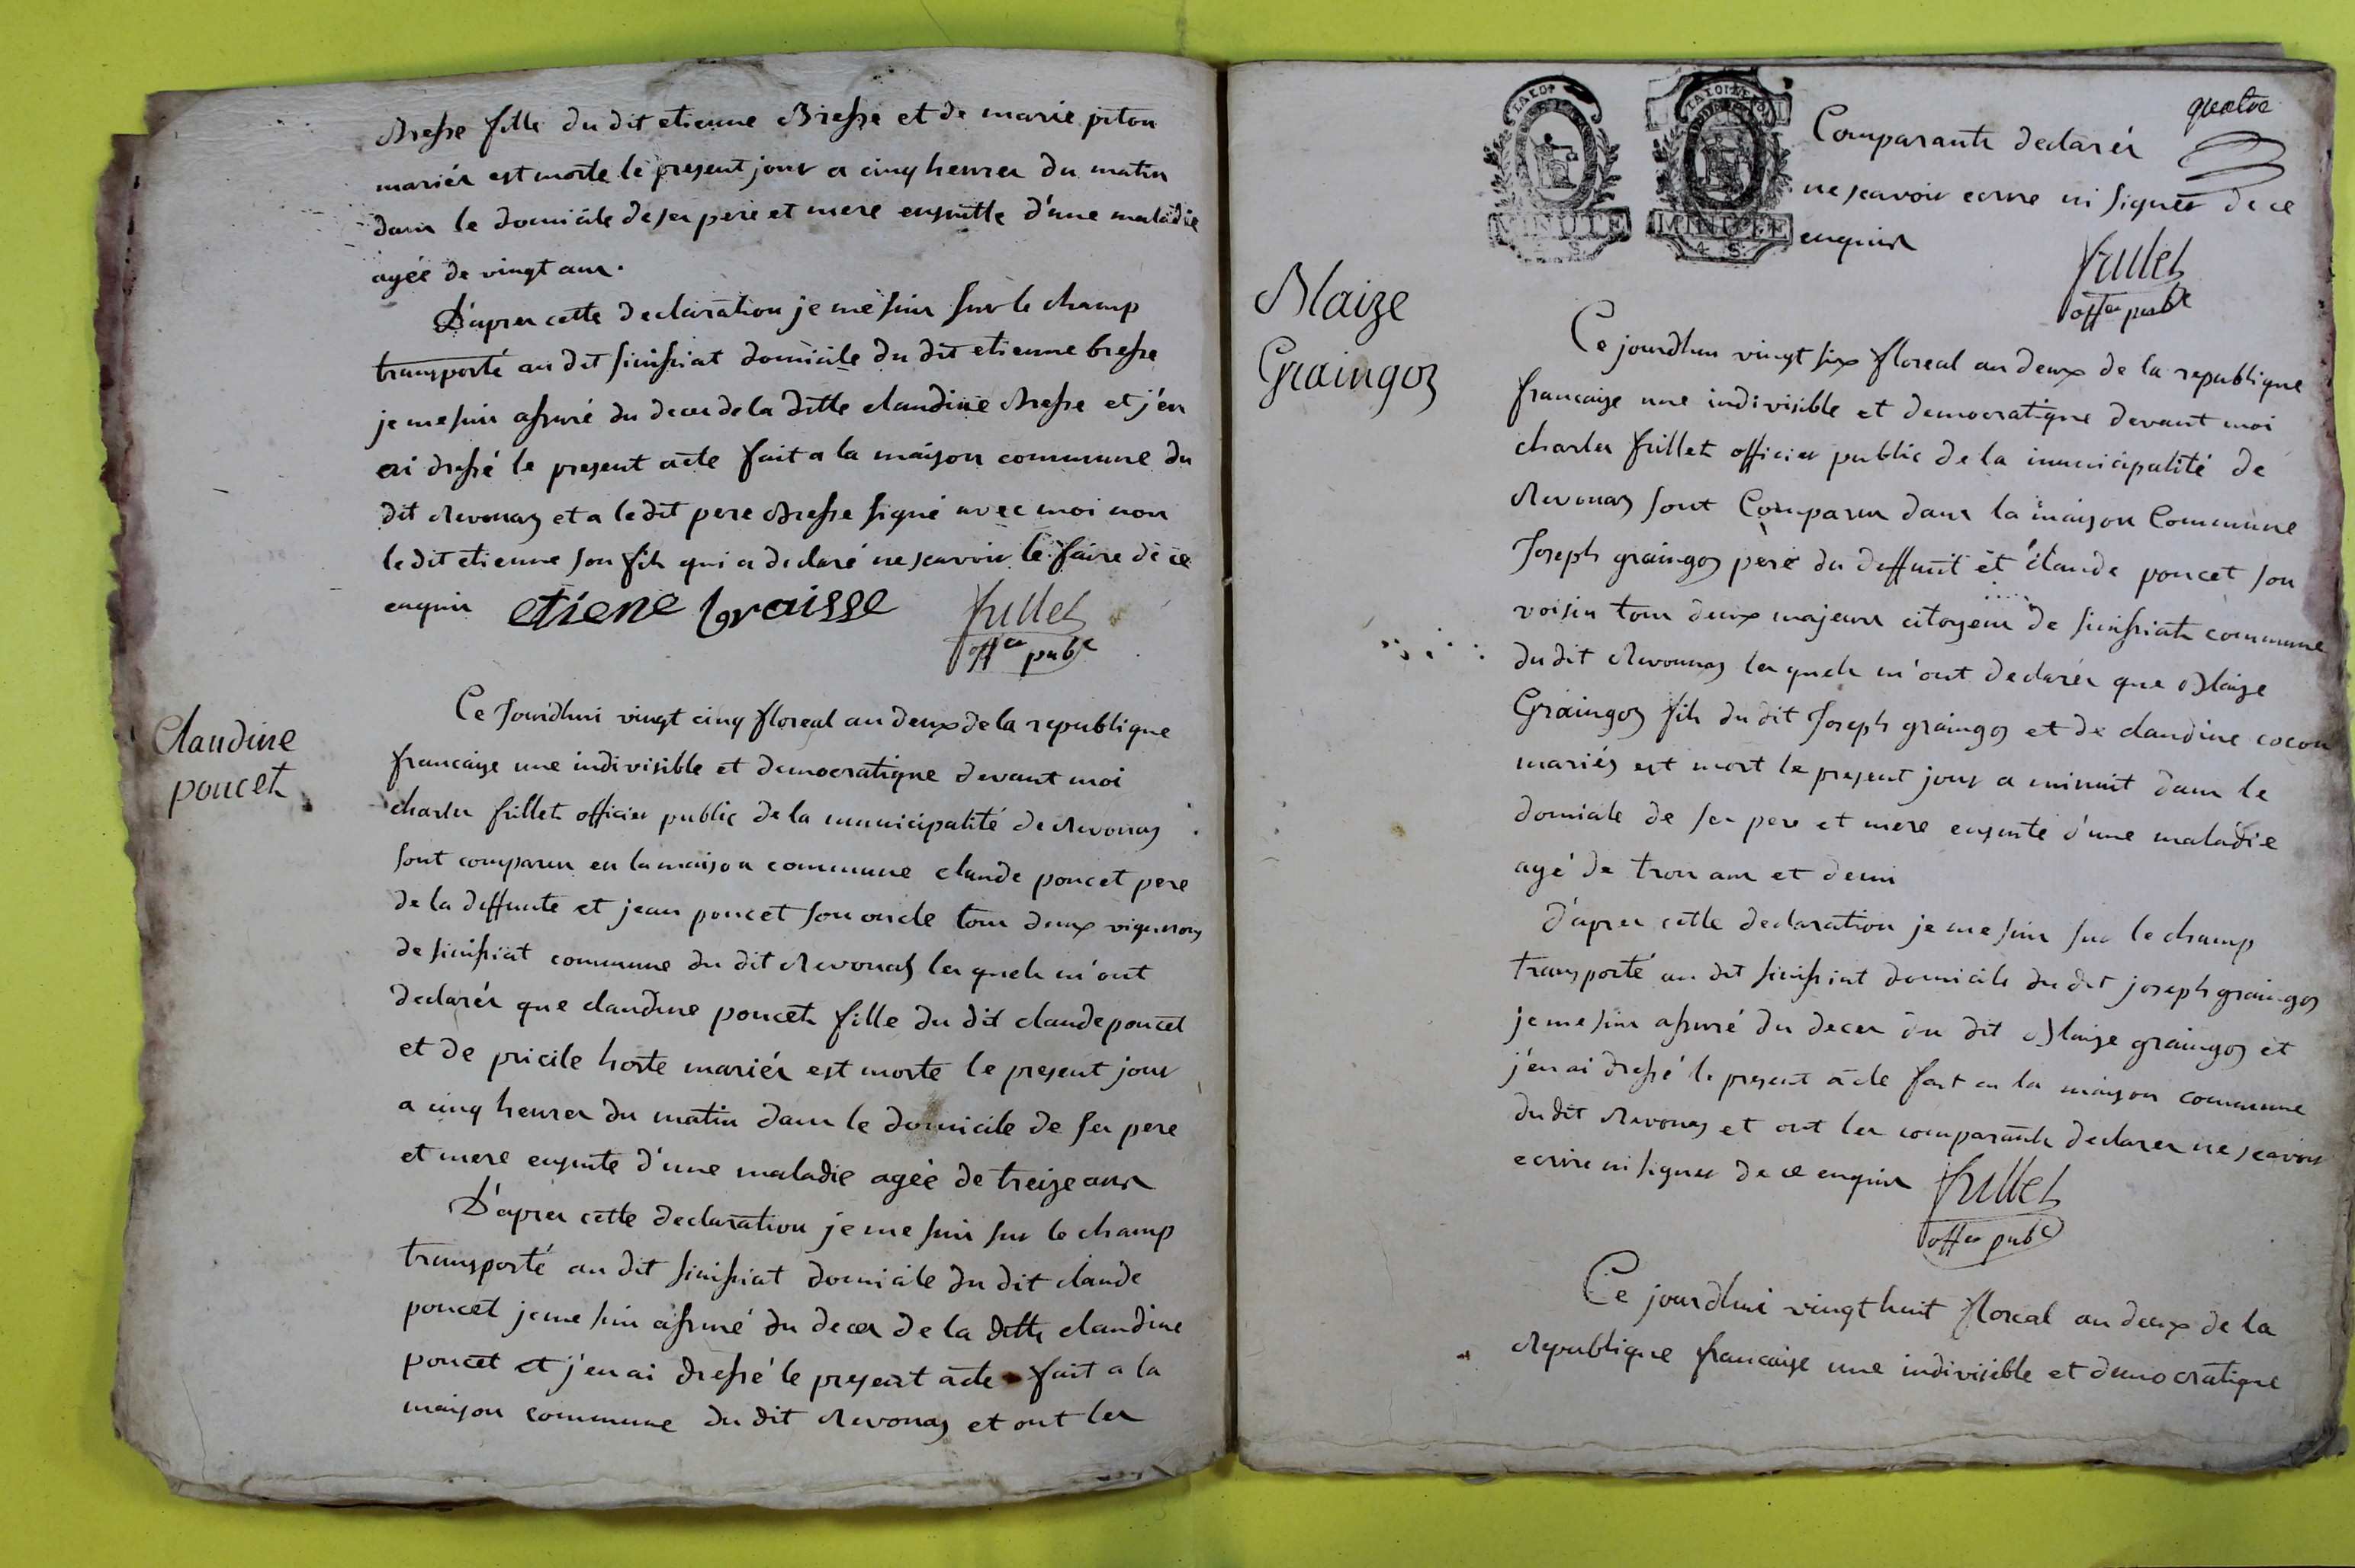 Bresse fille du dit etienne Bresse et de marie piton
mariés est morte le present jour a cinq heures du matin
dans le domicile de ses pere et mere ensuitte d'une maladie
agée de vingt ans.
D'apres cette declaration je me suis sur le champ
transporté au dit simssiat domicile du dit etienne bresse
je me suis assuré du deces de la ditte claudine Bresse et j'en
ai dressé le present acte fait a la maison commune du
dit Revonas et a le dit pere Bresse signé avec moi non
le dit etienne son fils qui a declaré ne scavoir le faire de ce
enquis etiene braisse frillet
offer pubc
Claudine
poncet
Ce Jourdhui vingt cinq floreal an deux de la republique
francaise une indivisible et democratique devant moi
charles frillet officier public de la municipalité de Revonas
sont comparus en la maison commune claude poncet pere
de la deffunte et jean poncet son oncle tous deux vignerons
de simssiat commune du dit Revonas les quels m'ont
declarés que claudine poncet fille du dit claude poncet
et de pricile horte mariés est morte le present jour
a cinq heures du matin dans le domicile de ses pere
et mere ensuite d'une maladie agée de treize ans
D'apres cette declaration je me suis sur le champ
transporté au dit simssiat domicile du dit claude
poncet je me suis assuré du deces de la ditte claudine
poncet et j'en ai dressé le present acte fait a la
maison commune du dit Revonas et ont les
quatre
MINUTE MINUTE
4. S.
Comparants declarés
ne scavoir ecrire ni signer de ce
enquis
frillet
offer pubc
Blaize
Graingoz
Ce jourdhui vingt six floreal an deux de la republique
francaise une indivisible et democratique devant moi
charles frillet officier public de la municipalité de
Revonas sont Comparus dans la maison Commune
Joseph graingoz pere du deffunt et claude poncet son
voisin tous deux majeurs citoyens de simssiat commune
du dit Revonnas les quels m'ont declarés que Blaize
Graingoz fils du dit Joseph graingoz et de claudine cocon
mariés est mort le present jour a minuit dans le
domicile de ses pere et mere ensuite d'une maladie
agé de trois ans et demi
D'apres cette declaration je me suis sur le champ
transporté au dit simssiat domicile du dit joseph graingoz
je me suis assuré du deces du dit Blaize graingoz et
j'en ai dressé le present acte fait en la maison commune
du dit Revonas et ont les comparants declares ne scavoir
ecrire ni signer de ce enquis frillet
offer pubc
Ce jourdhui vingt huit floreal an deux de la
Republique francaise une indivisible et democratique